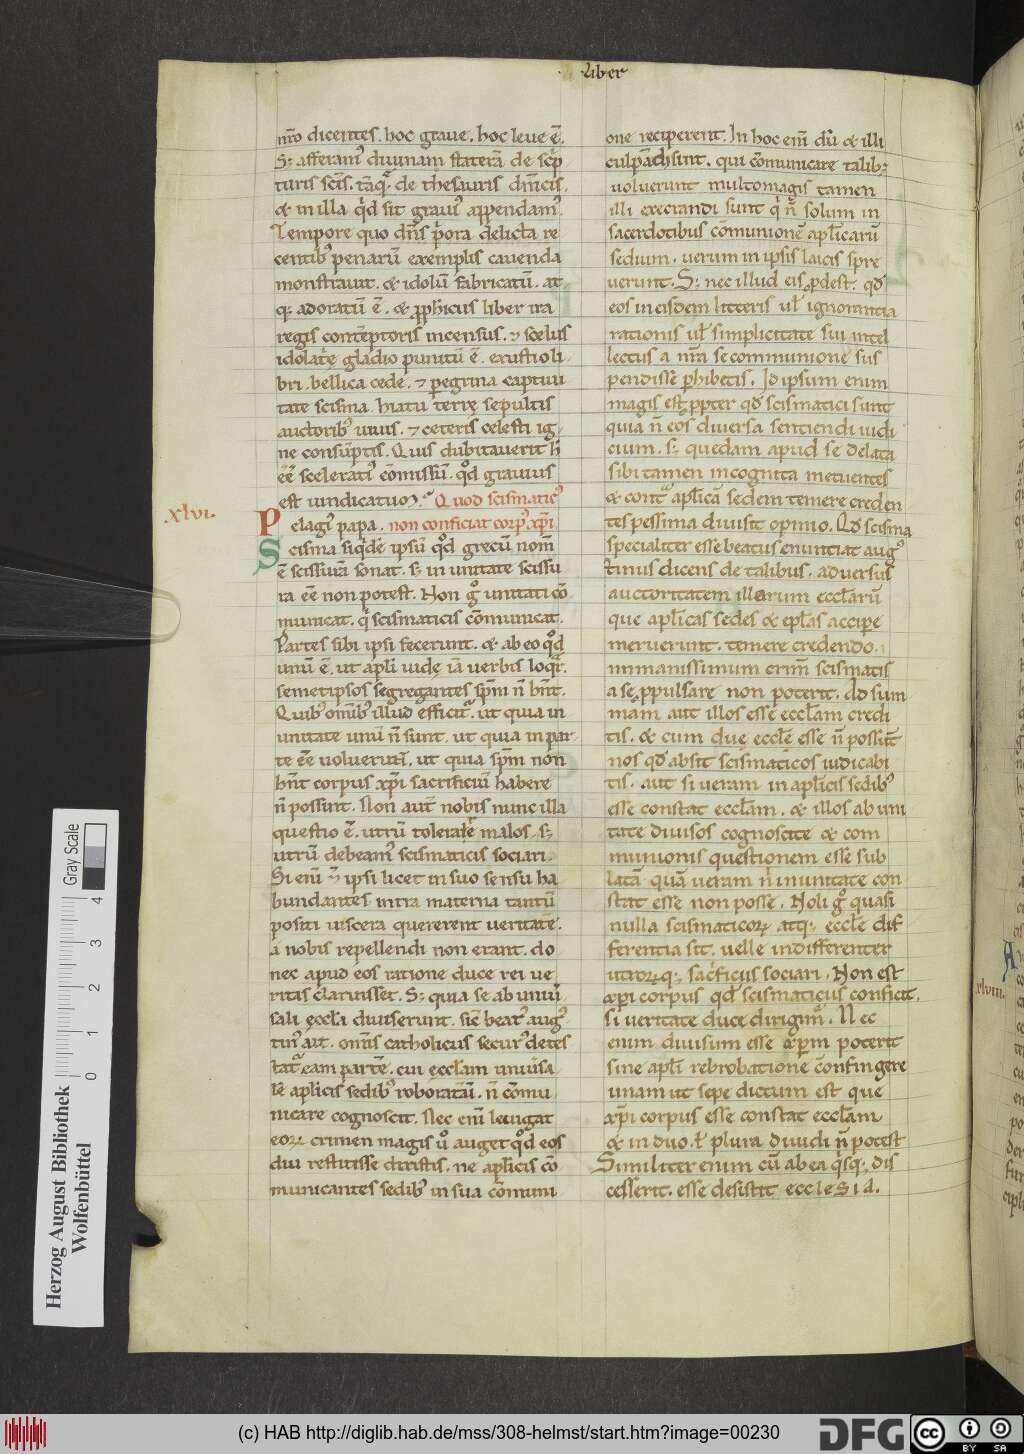 Liber
nr̄o dicentes. hoc graue. hoc leue ē.
S; afferam᷒ diuinam staterā de sc̄p
turis sc̄is. tāq̄ de thesauris dn̄icis.
& in illa qd̄ sit graui᷒ appendam᷒.
Tempore quo dn̄s p̄ora delicta re
centib᷒ penarū exemplis cauenda
monstrauit. & idolū fabricatū. at
q; adoratū ē. & ꝓphicus liber ira
regis contēptoris incensus. ⁊ scelus
idolatrę gladio punitū ē. exustio li
bri. bellica cede. ⁊ peregrina captiui
tate. scisma hiatu terrę sepultis
auctorib᷒ uiuis. ⁊ ceteris celesti ig
ne consūptis. Quis dubitauerit h̄
ēē scelerati᷒ cōmissū. qd̄ grauius
est uindicatum. Quod scismatic᷒
xlvi. Pelagi᷒ papa. non conficiat corp᷒ xp̄i.
Scisma siq̇dē ipsū qd̄ grecū nom̄
ē scissurā sonat. s; in unitate scissu
ra ēē non potest. Non g̊ unitati cō
municat. q̇ scismaticis cōmunicat.
Partes sibi ipsi fecerunt. & ab eo qd̄
unū ē. ut apl̄i iudę iā uerbis loqr̄.
semetipsos segregantes sp̄m n̄ hn̄t.
Quib᷒ omīb᷒ illud efficit᷑. ut quia in
unitate unū n̄ sunt. ut quia in par
te ēē uoluerūt. ut quia sp̄m non
hn̄t corpus xp̄i sacrificiū habere
n̄ possint. Non aut̄ nobis nunc illa
questio ē. utrū tolerarę malos. s;
utrū debeam᷒ scismaticis sociari.
Si eni̅ ⁊ ipsi licet in suo sensu ha
bundantes intra materna tantū
positi uiscera quererent ueritatē.
a nobis repellendi non erant. do
nec apud eos ratione duce rei ue
ritas claruisset. S; quia se ab uniuˀ
sali ęccl̄a diuiserunt. sic̄ beat᷒ aug᷒
tin᷒ aīt. omīs catholicus secur᷒ detes
tat᷑ eam partē. cui ęccl̄am uniuˀsa
lē aplicis sedib᷒ roboratā. n̄ cōmu
nicare cognoscit. Nec eni̅ leuigat
eoꝝ crimen magis u̇o auget qd̄ eos
diu restitisse dicistis. ne aplicis cō
municantes sedib᷒ in sua cōmuni
one reciperent. In hoc eni̅ dū & illi
culpādi sint. qui cōmunicare talib;
uoluerunt multomagis tamen
illi execrandi sunt q̇ n̄ solum in
sacerdotibus cōmunionē aplicarū
sedium. uerum in ipsis laicis spre
uerunt. S; nec illud eis ꝓdest. qd̄
eos in eisdem litteris ul̄ ignorantia
rationis ul̄ simplicitate sui intel
lectus a nr̄a se communione sus
pendissē ꝑhibetis. Id ipsum enim
magis est ꝓpter qd̄ scismatici sunt
quia n̄ eos diuersa sentiendi iudi
cium. s; quedam apud se delata
sibi tamen incognita metuentes
& cont̄ aplicā sedem temere creden
tes pessima diuisit opinio. Qd̄ scisma
specialiter esse beatus enuntiat aug᷒
tinus dicens de talibus. aduersus
auctoritatem illarum eccl̄arū
que aplicas sedes & epl̄as accipe
meruerunt. temere credendo.
immanissimum crim̄ scismatis
a se ꝓpulsare non poterit. Ad sum
mam aut illos esse eccl̄am credi
tis. & cum due eccl̄e esse n̄ possint
nos qd̄ absit scismaticos iudicabi
tis. aut si ueram in aplicis sedib᷒
esse constat eccl̄am. & illos ab uni
tate diuisos cognoscite & com
munionis questionem esse sub
latā quā ueram n̄ in unitate con
stat esse non posse. Noli g̊ quasi
nulla scismaticoꝝ atq; eccl̄e dif
ferentia sit. uelle indifferenter
utroꝝq; sacrificiis sociari. Non est
xp̄i corpus qd̄ scismaticus conficit.
si ueritate duce dirigim᷑. Nec
enim diuisum esse xp̄m poterit
sine apl̄i rebrobatione cōnfingere
unam ut sepe dictum est que
xp̄i corpus esse constat eccl̄am
& in duo. ł plura diuidi n̄ potest
Similiter enim cū ab ea q̇sq; dis
cesserit. esse desistit ecclesia.
xlviii.
A
Herzog August Bibliothek
Wolfenbüttel
Gray Scale
0 1 2 3 4
(c) HAB http://diglib.hab.de/mss/308-helmst/start.htm?image=00230
DFG
cc BY SA